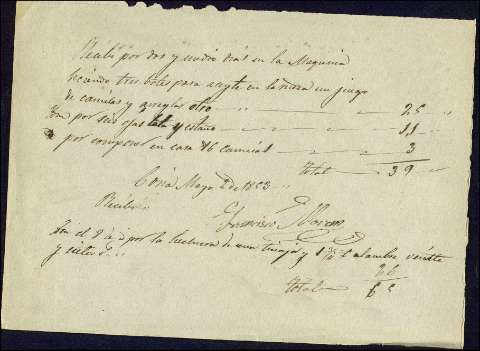 Recibi por dos y medio dias en la Maquina
haciendo tres botes para aceyte en la misma un juego
de camisas y arreglar otro 25
Idem por sus ojas lata y estaño 11
por componer en casa 16 camisas 3
total 39
Coria Mayo 2 de 1853
Recibi
Francisco Moreno
por la hechura de una y alambre veinte
y siete
26
total 65